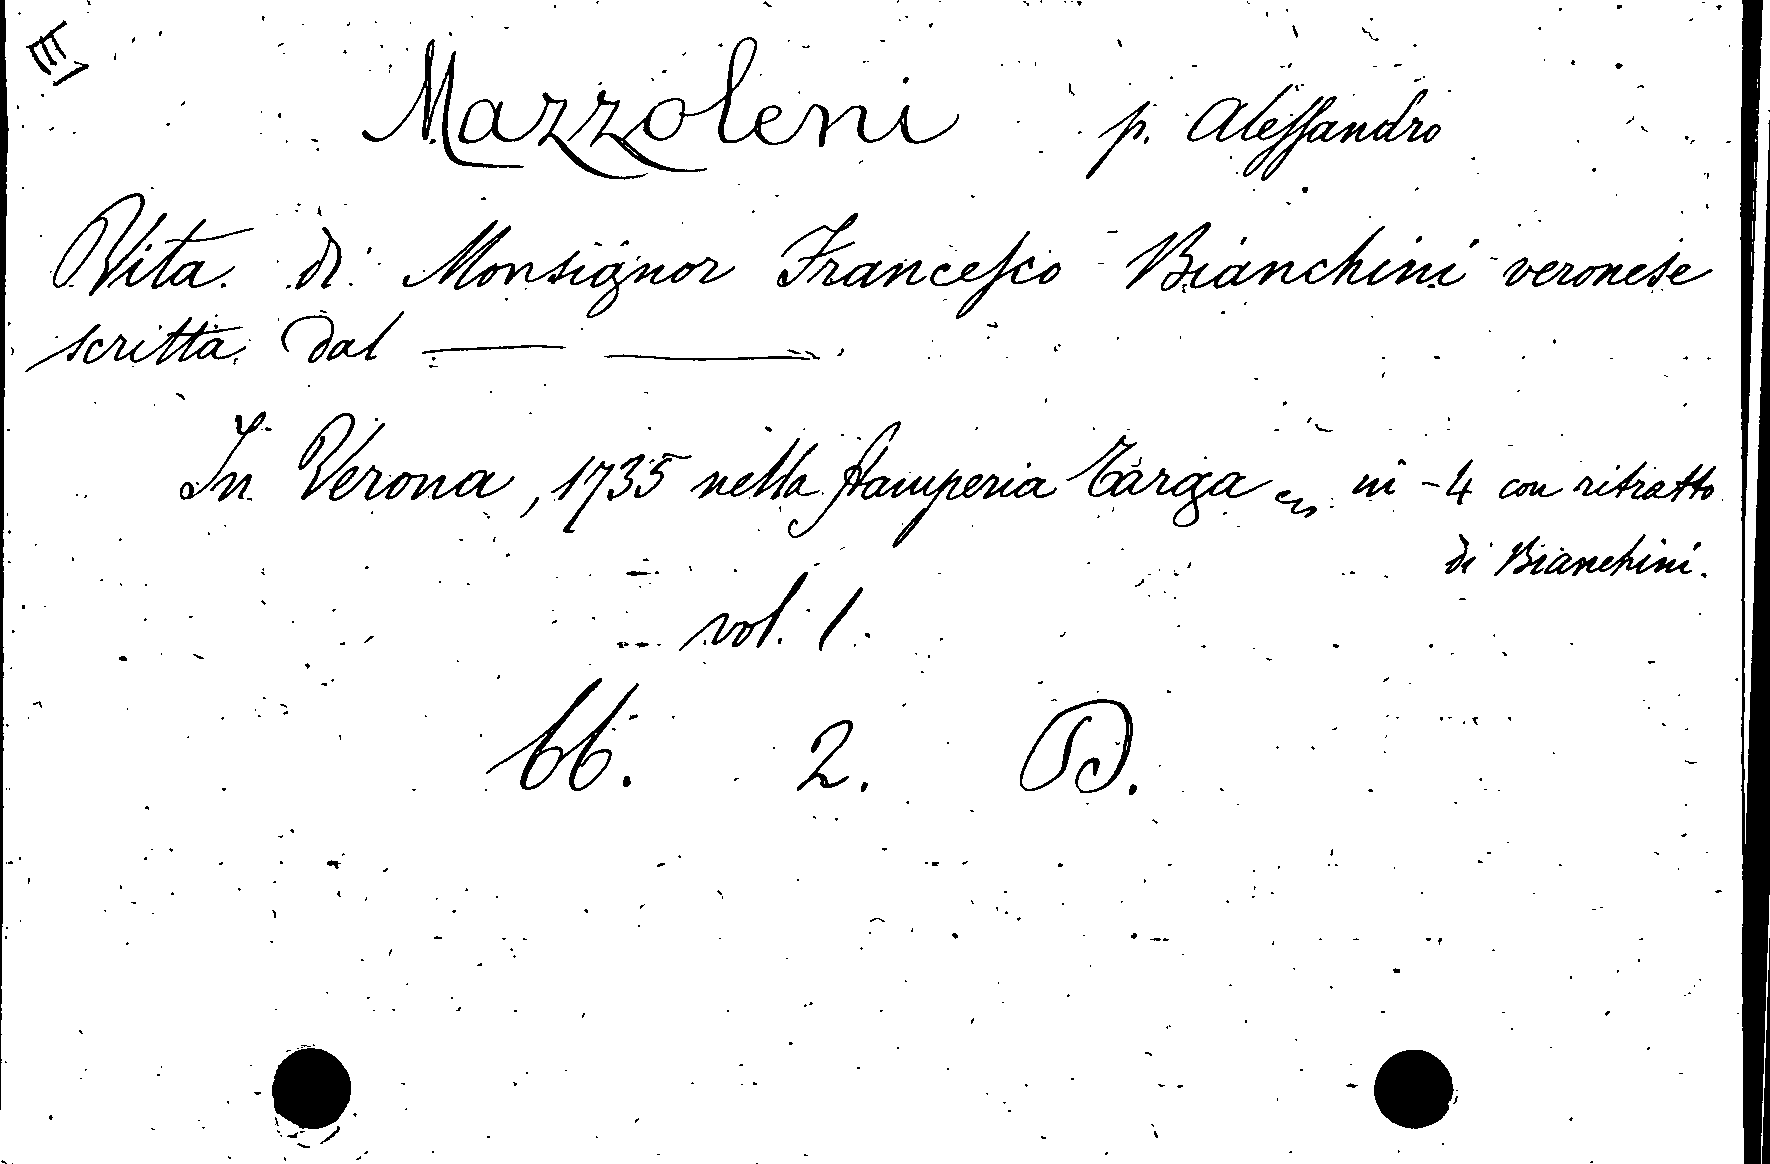 III
Mazzoleni p. Alessandro
Vita di Monsignor Francesco Bianchini veronese
scritta dal —— ——
In Verona, 1735 nella Stamperia Targa in-4 con ritratto
di Bianchini.
vol. 1.
66. 2. D.